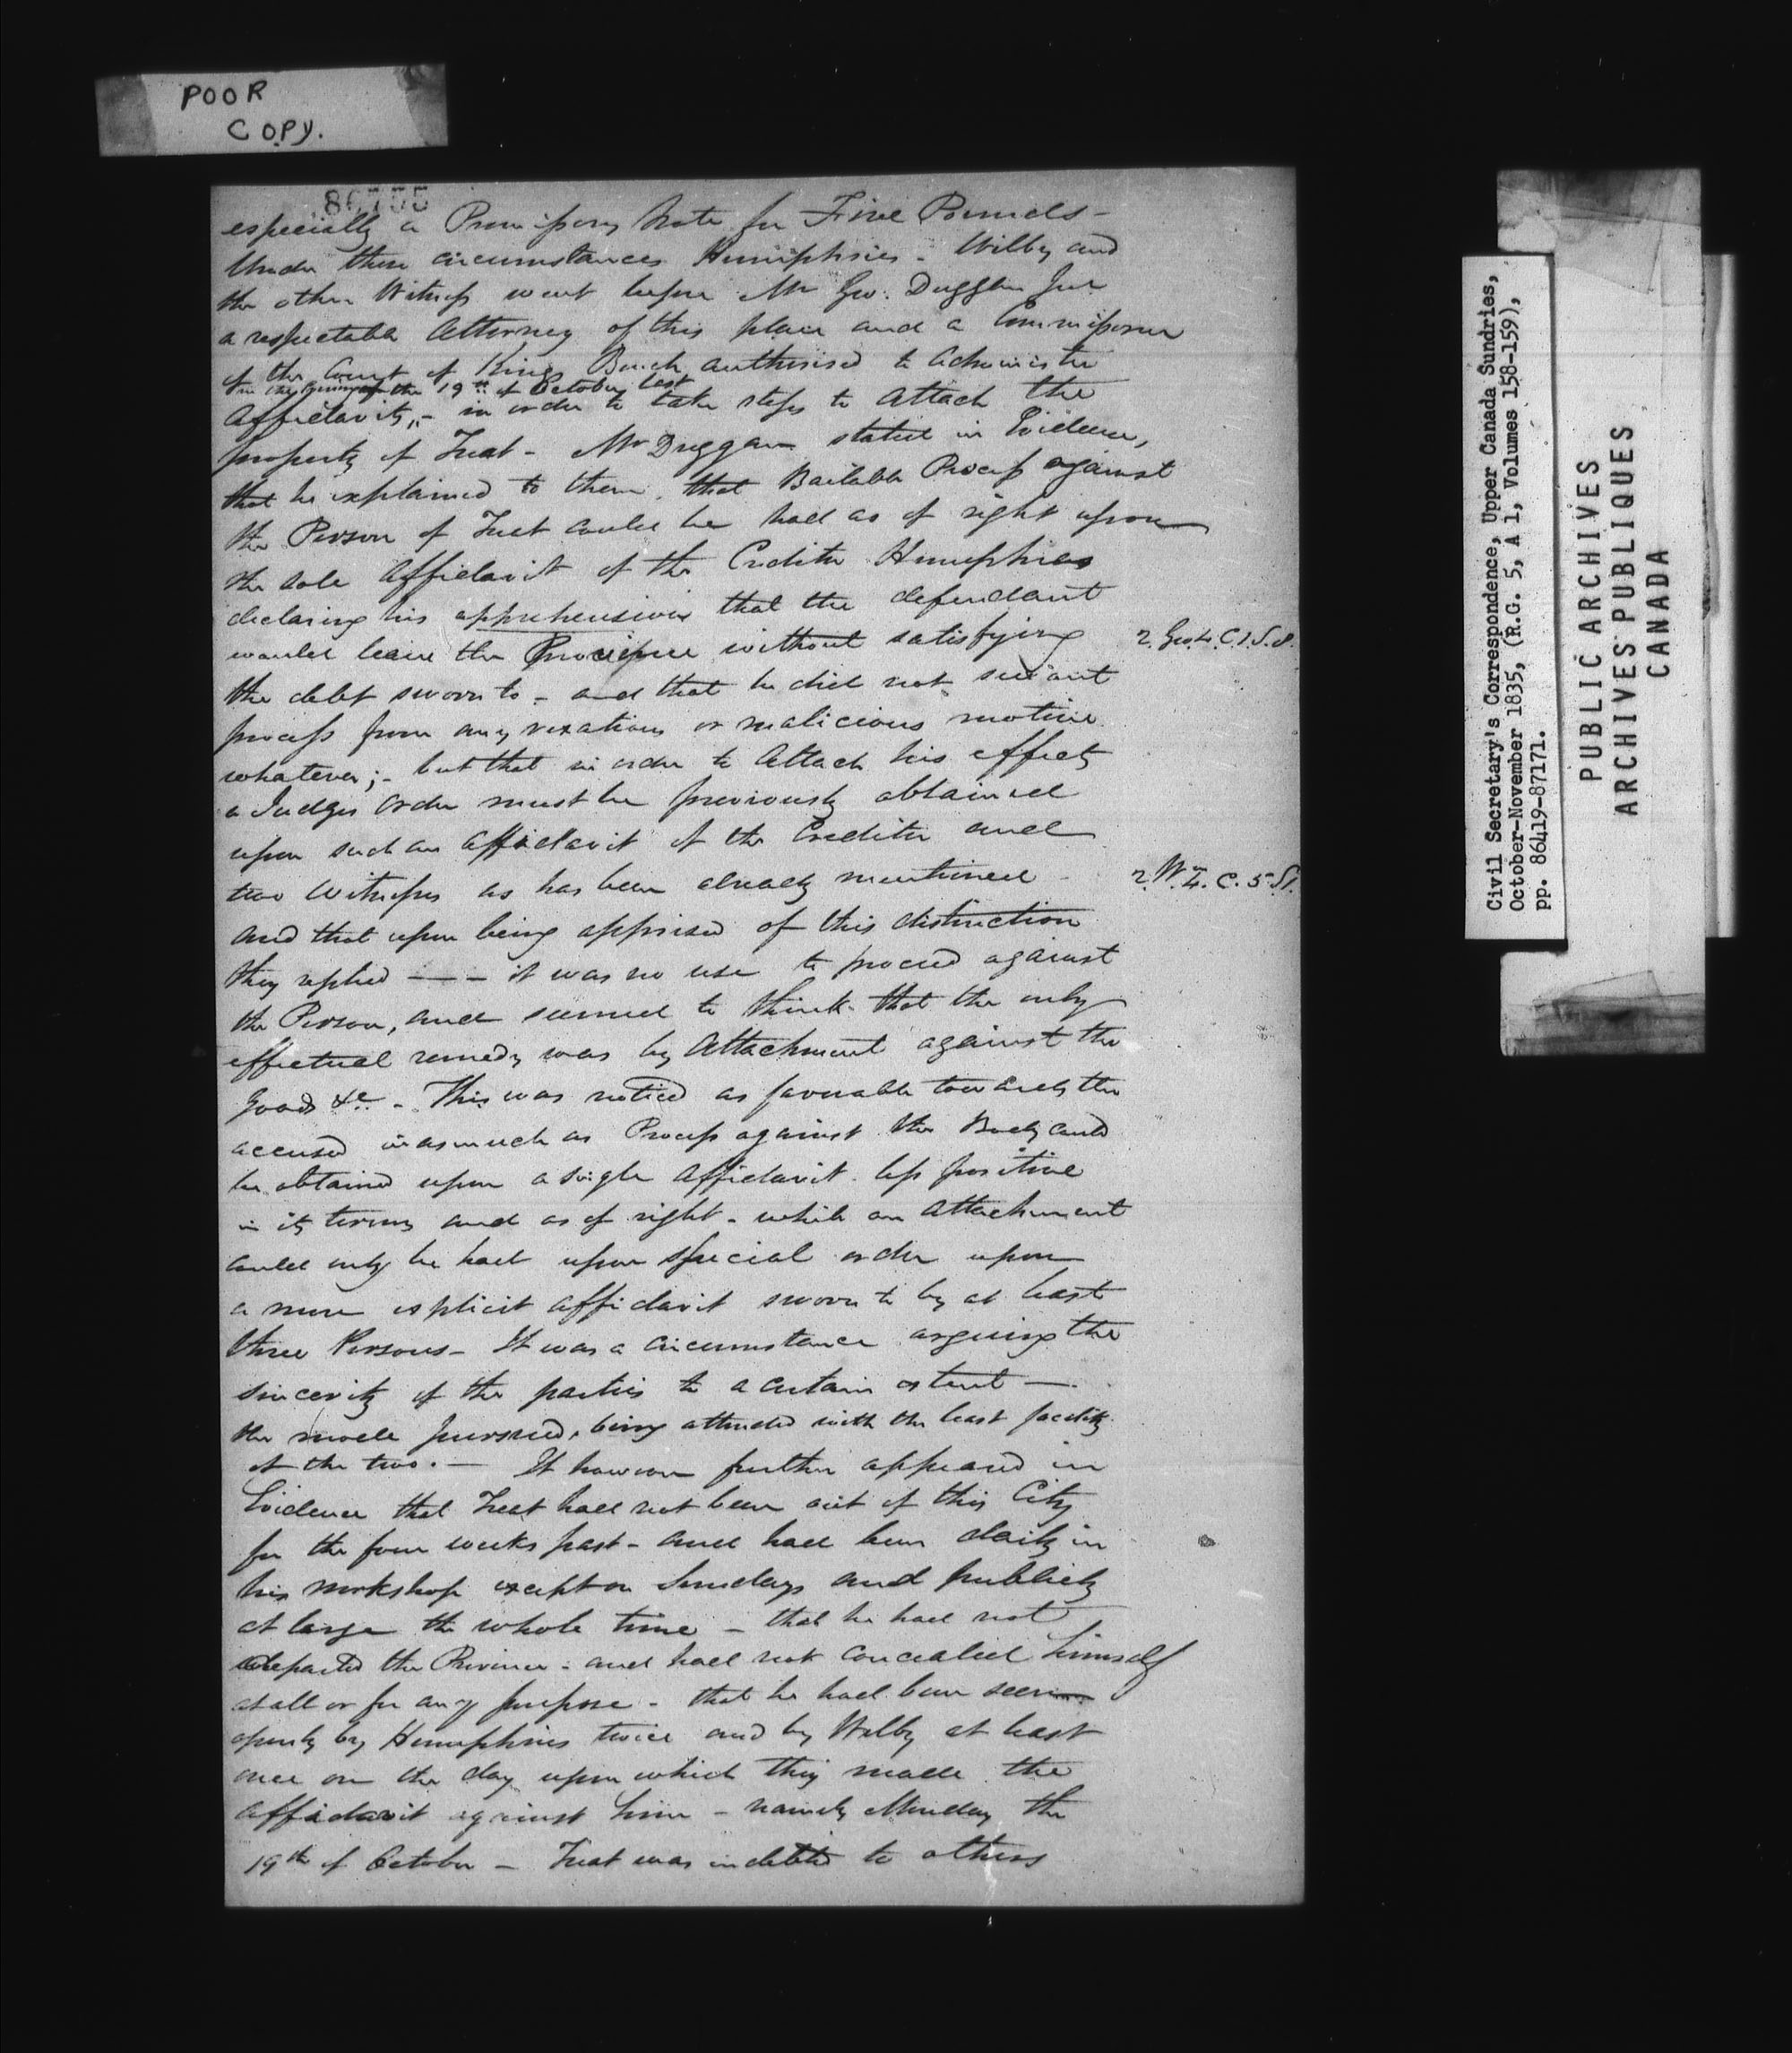 POOR
COPY.
86755
especially a Promissory Note for Five Pounds -
Under these circumstances Humphries - Wilby and
the other Witness went before Mr Geo: Duggan Jun
a respectable Attorney of this place and a Commissioner
of the Court of Kings Bench authorised to administer
In the evening of the 19th of October last
Affidavits, - in order to take steps to attach the
property of Treat - Mr Duggan stated in Evidence,
that he explained to them, that Bailable Process against
the Person of Treat could be had as of right upon
the sole Affidavit of the Creditor Humphries
declaring his apprehension that the defendant
would leave the Province without satisfying
2. Geo. 4. C. 1. S. 8.
the debt sworn to - and that he did not sue out
process from any vexatious or malicious motive
whatever; - but that in order to Attach his effects
a Judges Order must be previously obtained
upon such an Affidavit of the Creditor and
two Witnesses as has been already mentioned -
2. W. 4. C. 5. S1.
And that upon being apprised of this distinction
they replied - - - it was no use to proceed against
the Person, and seemed to think that the only
effectual remedy was by Attachment against the
Goods &c. - This was noticed as favorable towards the
accused inasmuch as Process against the Body could
be obtained upon a single Affidavit less positive
in its terms and as of right - while an Attachment
could only be had upon special order upon
a more explicit affidavit sworn to by at least
three Persons - It was a circumstance arguing the
sincerity of the parties to a certain extent -
the mode pursued, being attended with the least facility
of the two. - It however further appeared in
Evidence that Treat had not been out of this City
for the four weeks past - and had been daily in
his workshop except on Sundays and publicly
at large the whole time - that he had not
departed the Province - and had not concealed himself
at all or for any purpose - that he had been seen
openly by Humphries twice and by Wilby at least
once on the day upon which they made the
Affidavit against him - namely Monday the
19th of October - Treat was indebted to others
Civil Secretary's Correspondence, Upper Canada Sundries,
October-November 1835, (R.G. 5, A 1, Volumes 158-159),
pp. 86419-87171.
PUBLIC ARCHIVES
ARCHIVES PUBLIQUES
CANADA